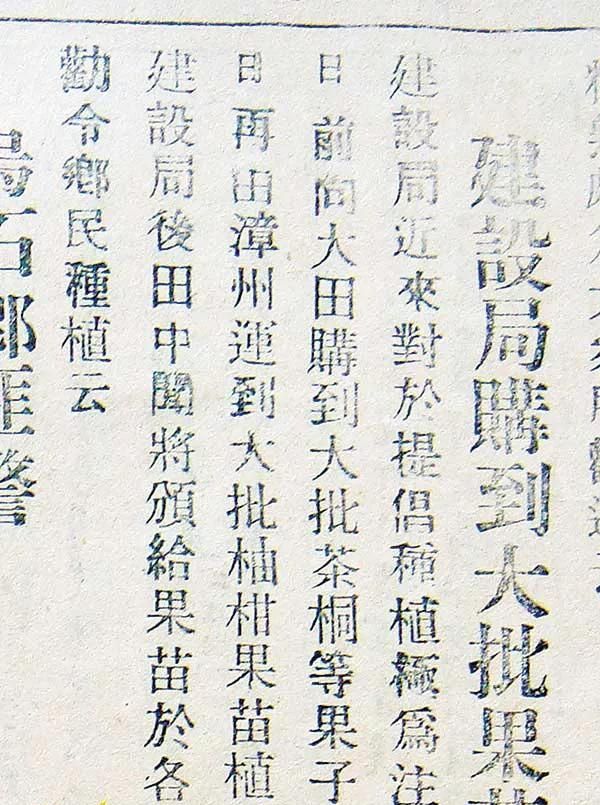 建設局購到大批果
建設局近來對於提倡種植極為注
日前向大田購到大批茶桐等果子
日再由漳州運到大批柚柑果苗植
建設局後田中聞將頒給果苗於各
勸令鄉民種植云
石鄉匪警